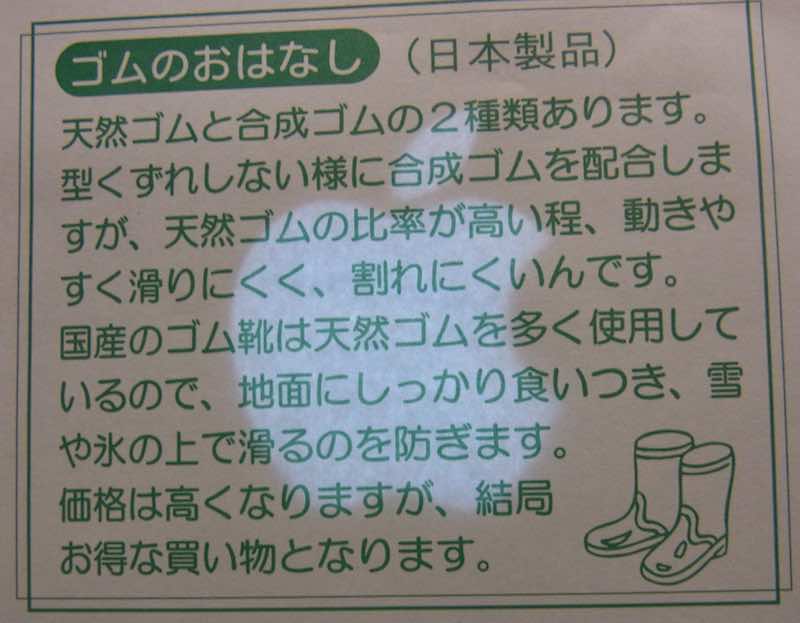 ゴムのおはなし（日本製品）
天然ゴムと合成ゴムの２種類あります。
型くずれしない様に合成ゴムを配合しま
すが、天然ゴムの比率が高い程、動きや
すく滑りにくく、割れにくいんです。
国産のゴム靴は天然ゴムを多く使用して
いるので、地面にしっかり食いつき、雪
や氷の上で滑るのを防ぎます。
価格は高くなりますが、結局
お得な買い物となります。